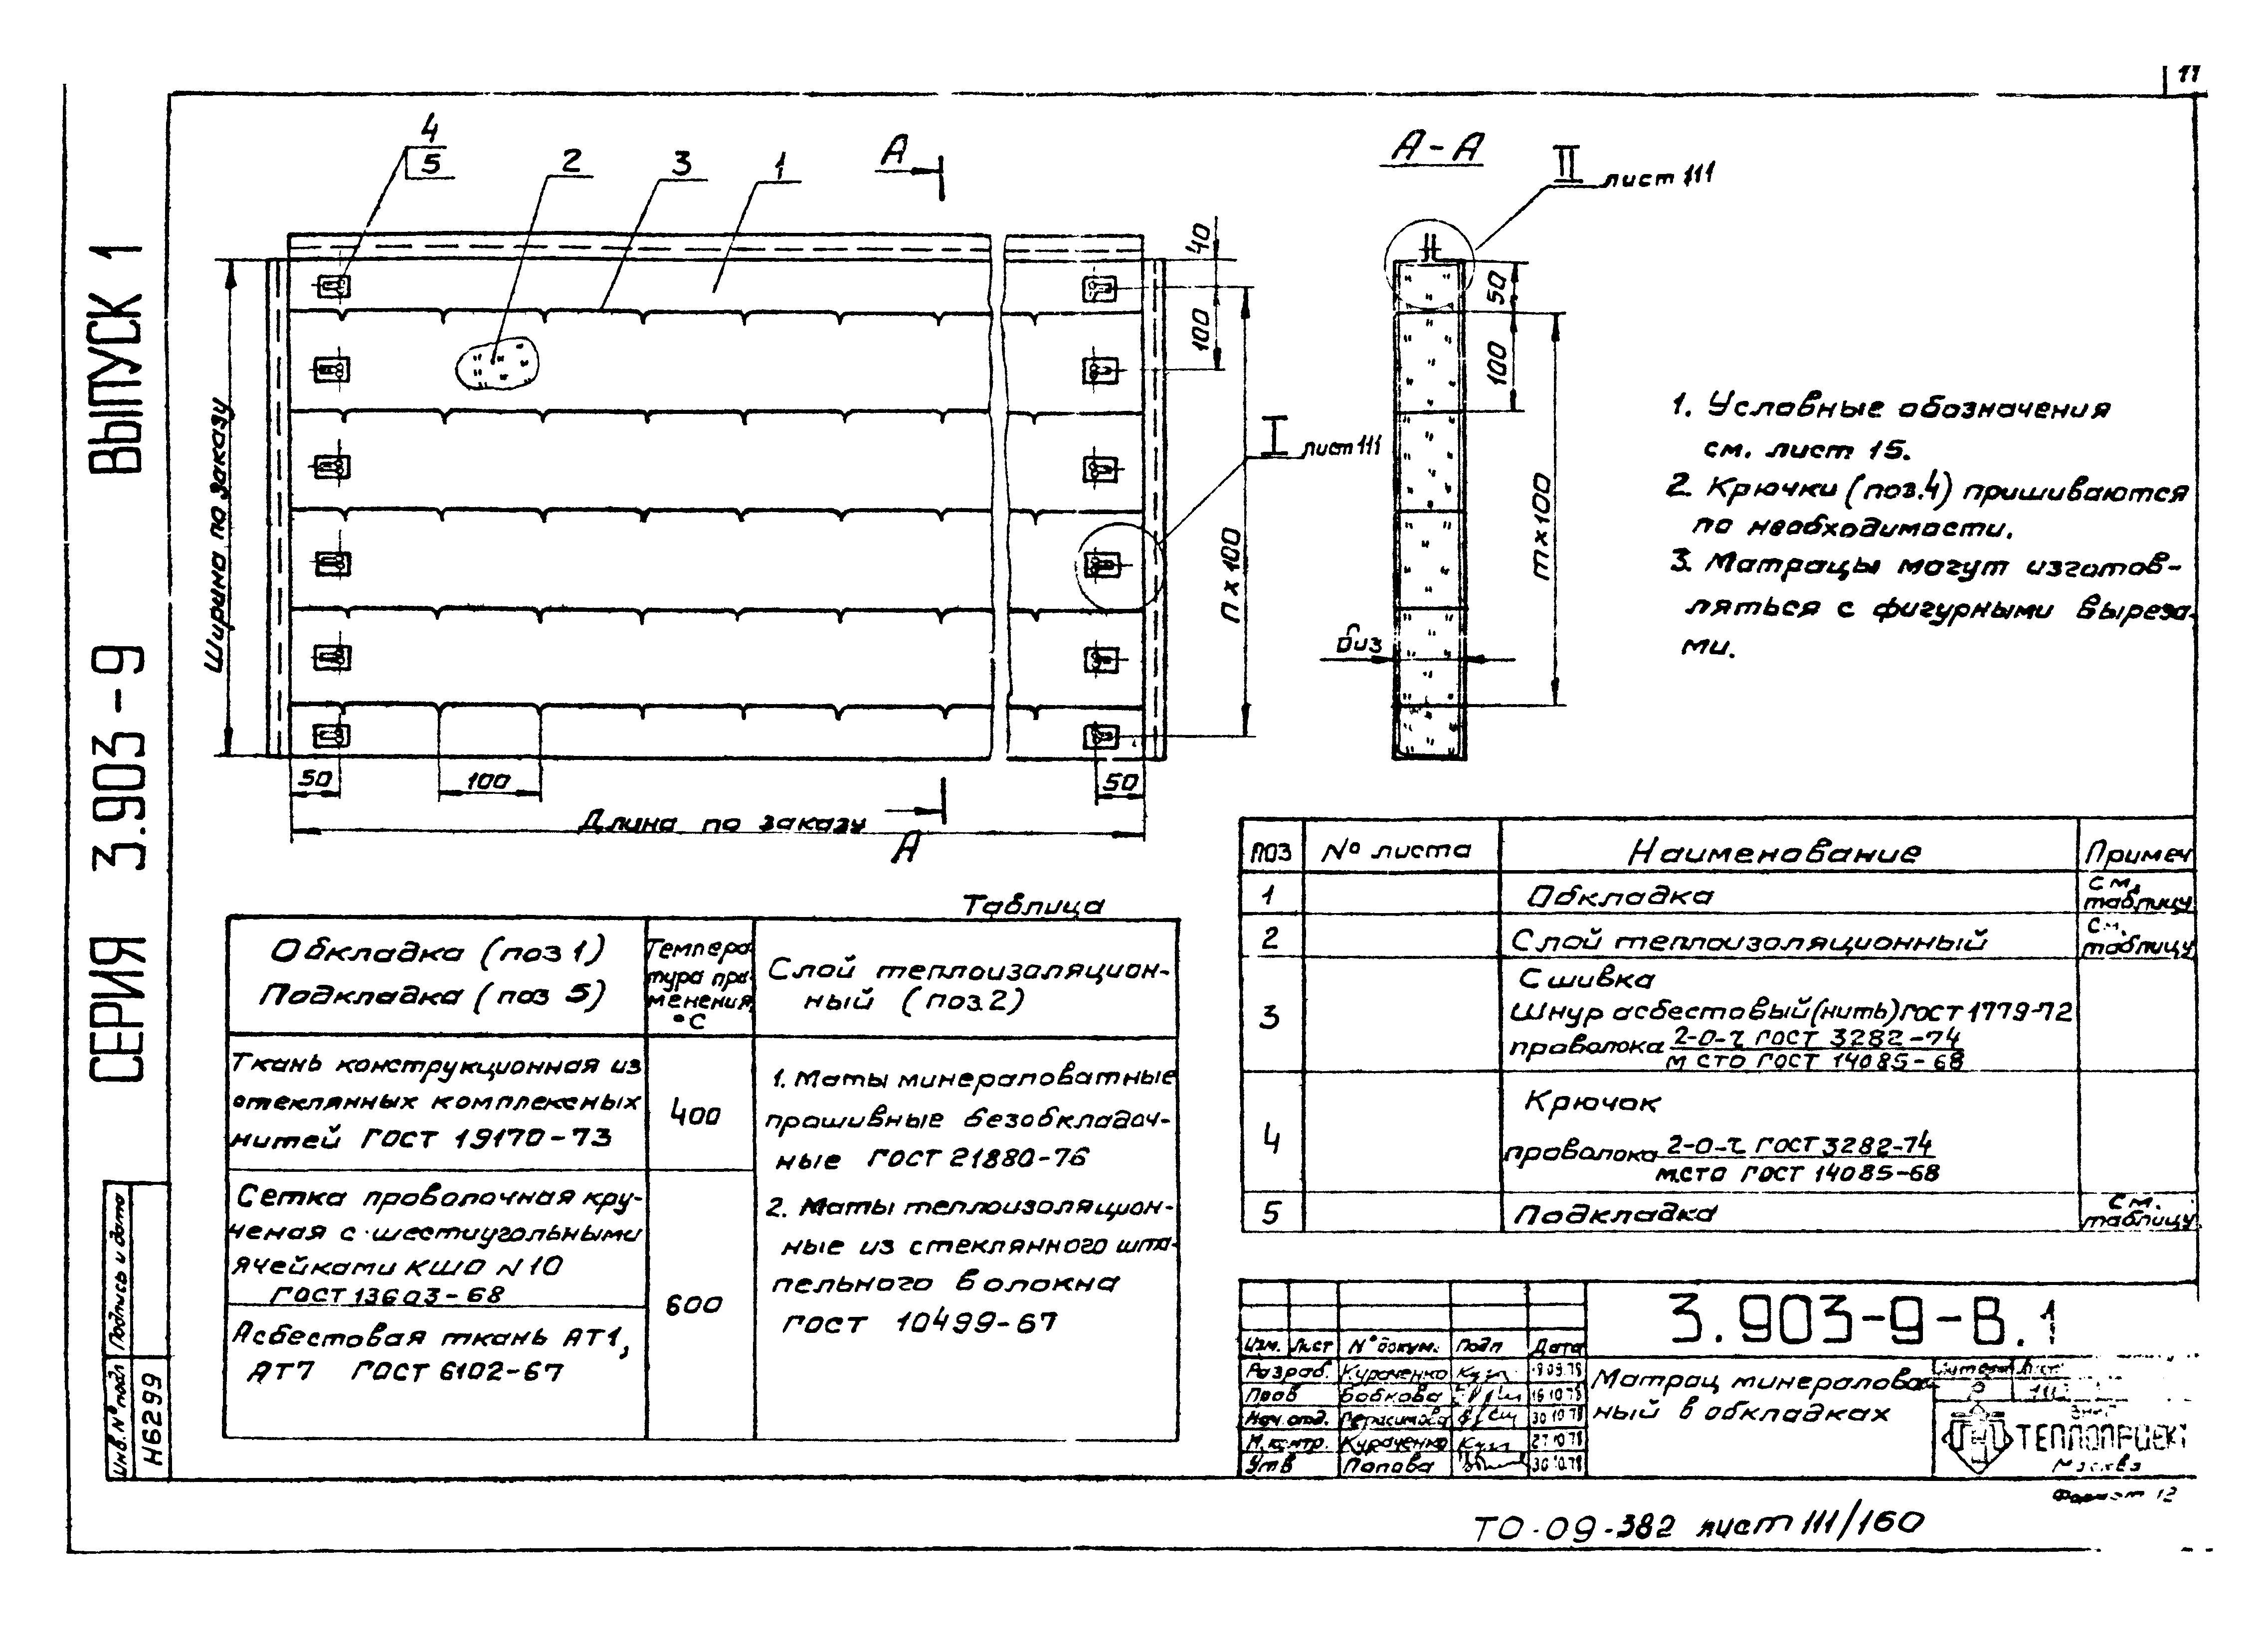 11
СЕРИЯ 3.903-9 ВЫПУСК 1
4
5
2
3
1
А
А-А
II лист 111
40
100
I лист 111
n x 100
Ширина по заказу
50
100
50
Длина по заказу
А
50
100
m x 100
биз
1. Условные обозначения
см. лист 15.
2. Крючки (поз.4) пришиваются
по необходимости.
3. Матрацы могут изготов-
ляться с фигурными выреза-
ми.
поз № листа Наименование Примеч
1 Обкладка см. таблицу
2 Слой теплоизоляционный см. таблицу
3 Сшивка
Шнур асбестовый (нить) ГОСТ 1779-72
проволока 2-О-Ч ГОСТ 3282-74
м СТО ГОСТ 14085-68
4 Крючок
проволока 2-О-Ч ГОСТ 3282-74
м.СТО ГОСТ 14085-68
5 Подкладка см. таблицу
Таблица
Обкладка (поз 1)
Подкладка (поз 5)
Темпера-
тура при-
менения,
°С
Слой теплоизоляцион-
ный (поз.2)
Ткань конструкционная из
стеклянных комплексных
нитей ГОСТ 19170-73
400
Сетка проволочная кру-
ченая с шестиугольными
ячейками КШО N 10
ГОСТ 13603-68
600
Асбестовая ткань АТ1,
АТ7 ГОСТ 6102-67
1. Маты минераловатные
прошивные безобкладоч-
ные ГОСТ 21880-76
2. Маты теплоизоляцион-
ные из стеклянного шта-
пельного волокна
ГОСТ 10499-67
3.903-9-В.1
Изм. Лист № докум. Подп Дата
Разраб. Кураченко
Пров Бобкова 16.10.78
Нач.отд. Герасимова 30.10.78
Н.контр. Кураченко 27.10.78
Утв Попова 30.10.78
Матрац минераловат-
ный в обкладках
ТЕПЛОПРОЕКТ
Москва
Формат 12
Инв. № подл Подпись и дата
Н6299
ТО-09-382 лист 111/160